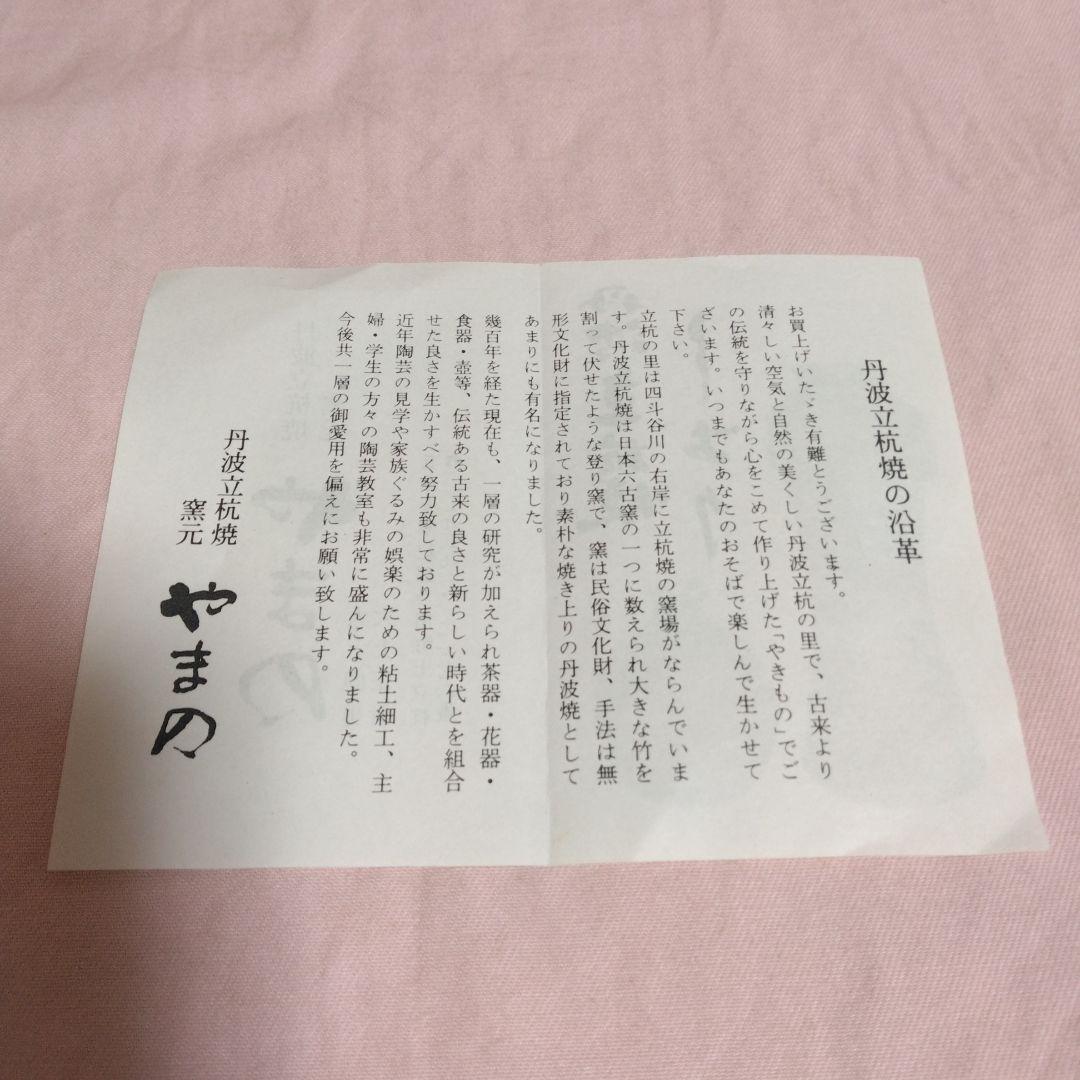 丹波立杭焼の沿革
お買上げいたゞき有難とうございます。
清々しい空気と自然の美くしい丹波立杭の里で、古来より
の伝統を守りながら心をこめて作り上げた「やきもの」でご
ざいます。いつまでもあなたのおそばで楽しんで生かせて
下さい。
立杭の里は四斗谷川の右岸に立杭焼の窯場がならんでいま
す。丹波立杭焼は日本六古窯の一つに数えられ大きな竹を
割って伏せたような登り窯で、窯は民俗文化財、手法は無
形文化財に指定されており素朴な焼き上りの丹波焼として
あまりにも有名になりました。
幾百年を経た現在も、一層の研究が加えられ茶器・花器・
食器・壺等、伝統ある古来の良さと新らしい時代とを組合
せた良さを生かすべく努力致しております。
近年陶芸の見学や家族ぐるみの娯楽のための粘土細工、主
婦・学生の方々の陶芸教室も非常に盛んになりました。
今後共一層の御愛用を偏えにお願い致します。
丹波立杭焼
窯元
やまの